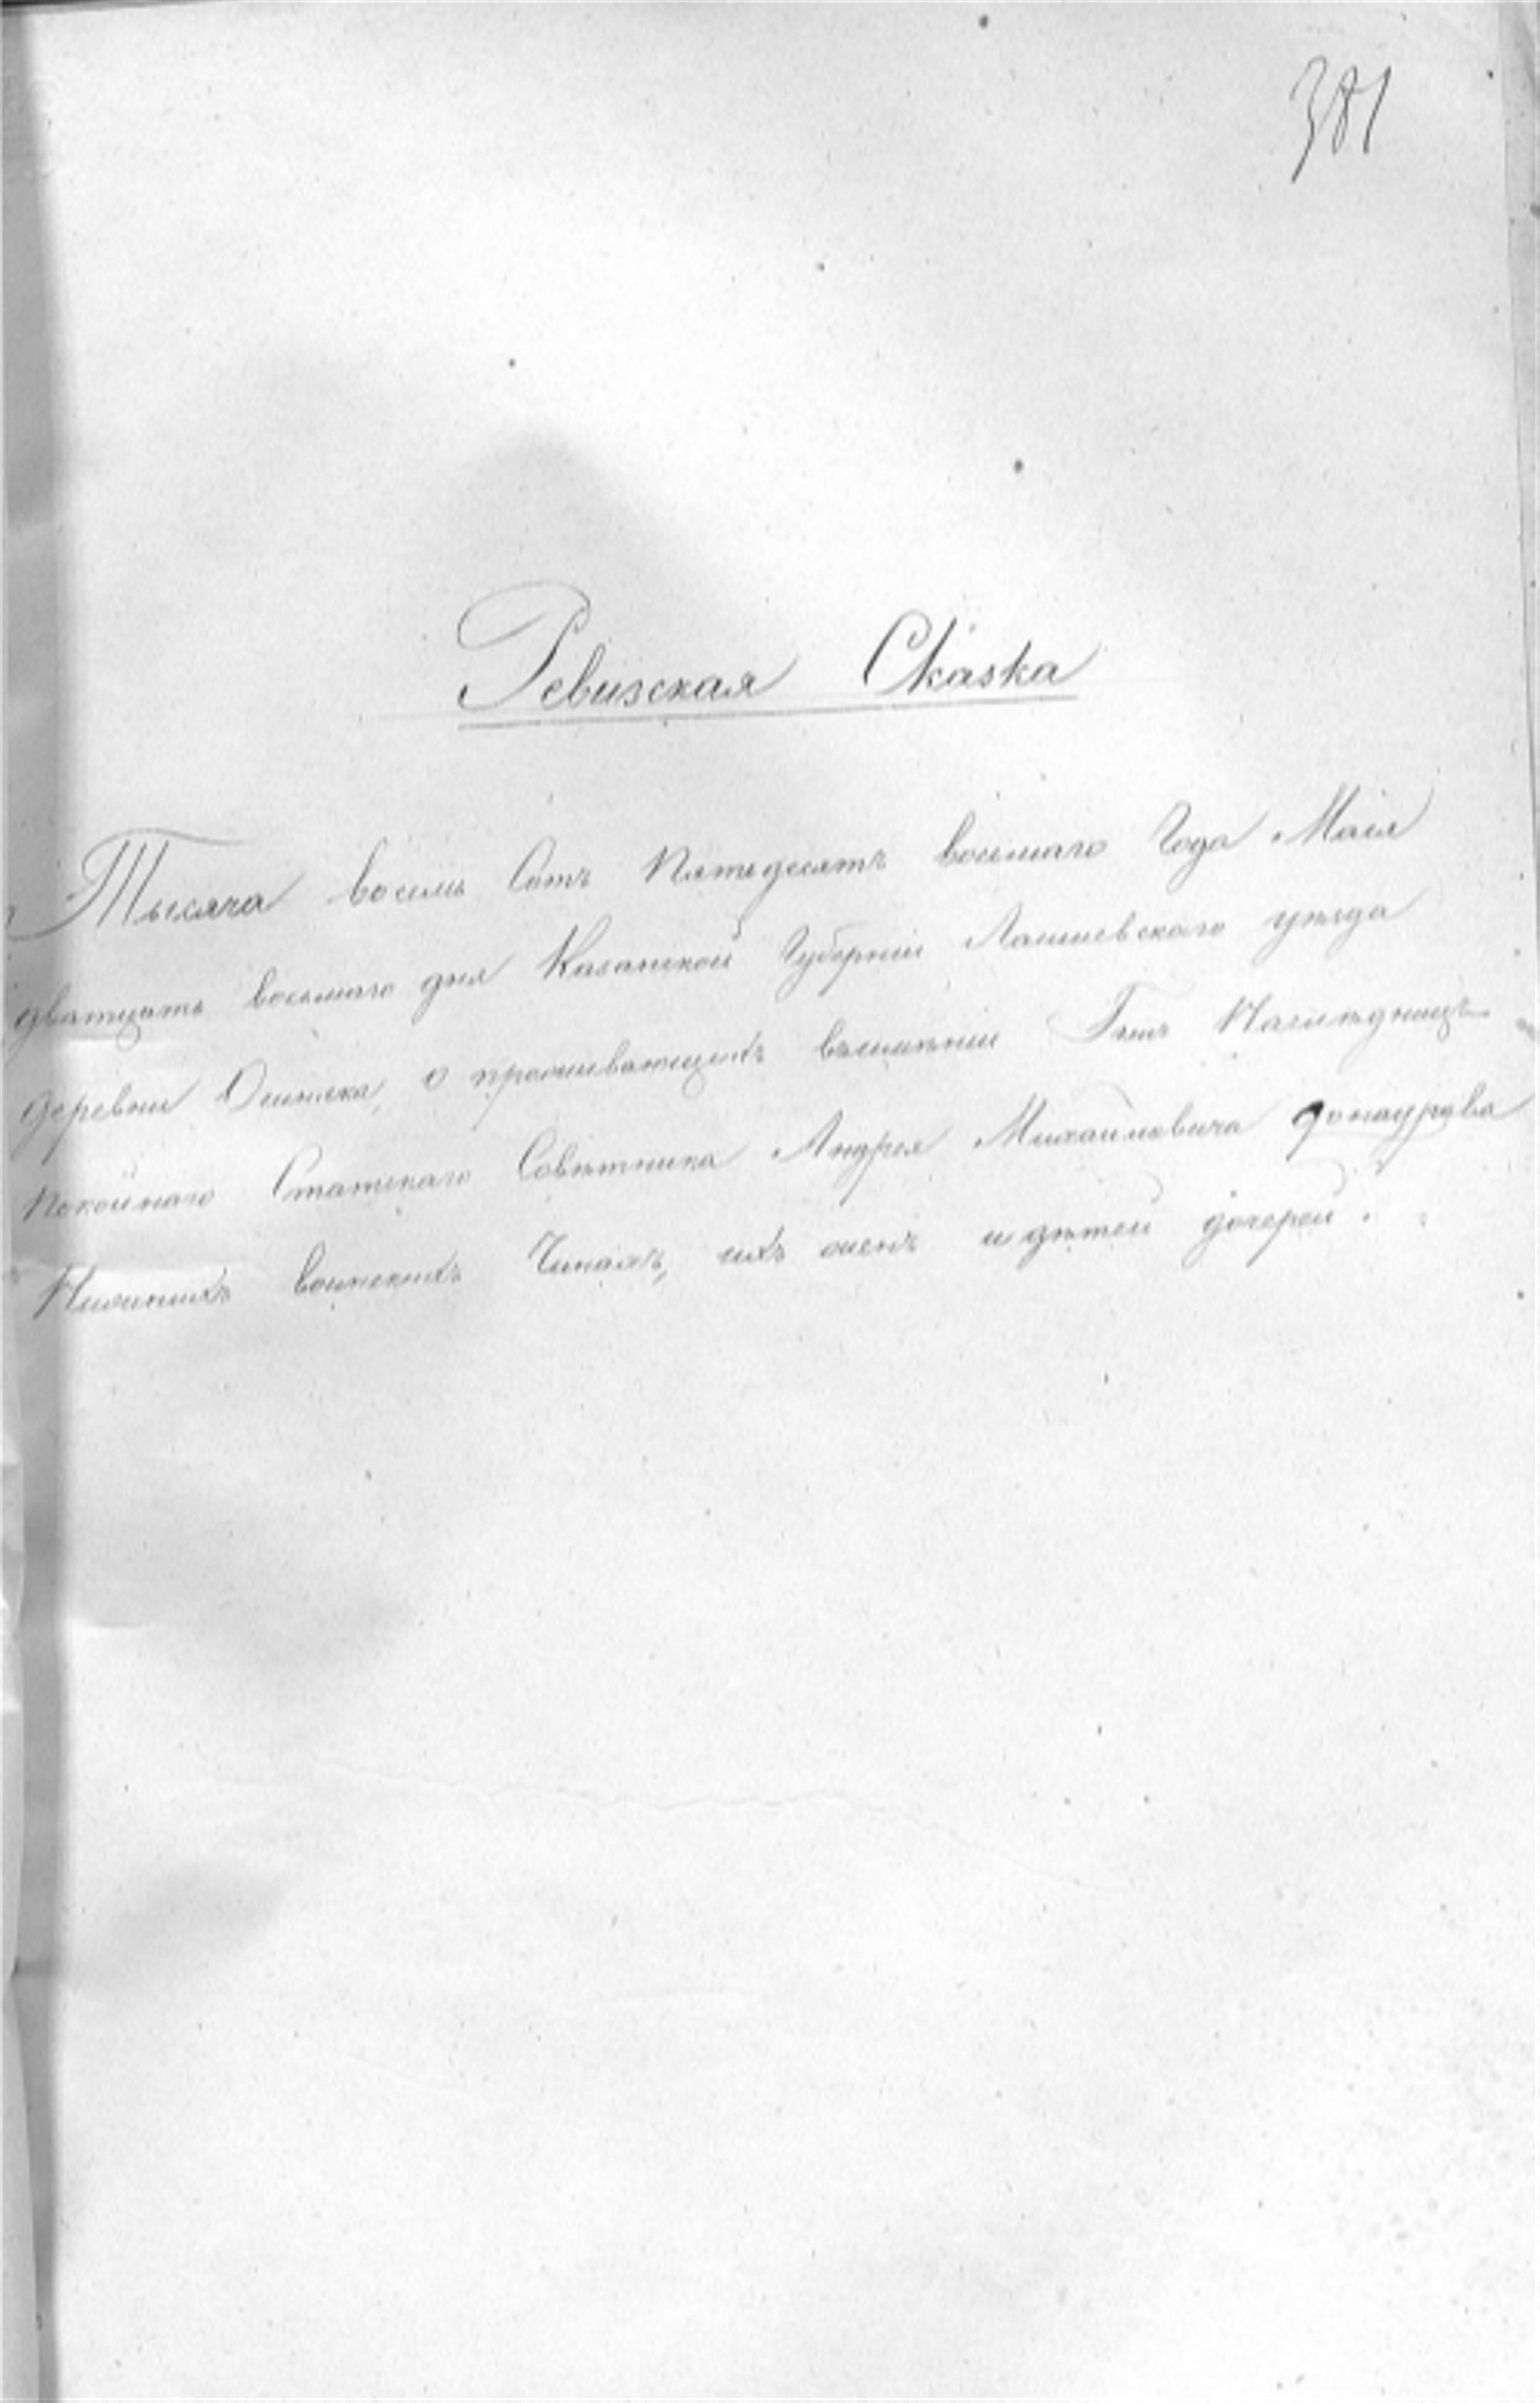 381
Ревизская Сказка
Тысяча восемь Сотъ Пятидесятъ восьмаго Года Маія
дватцать восьмаго дня Казанской Губерніи Лаишевскаго уѣзда
деревни Ошняка, о проживающихъ въимѣніи Гжъ Наслѣдницъ
покойнаго Статскаго Совѣтника Андрея Михайловича Донаурова
Нижнихъ воинскихъ Чинахъ, ихъ женъ и дѣтей дочерей.